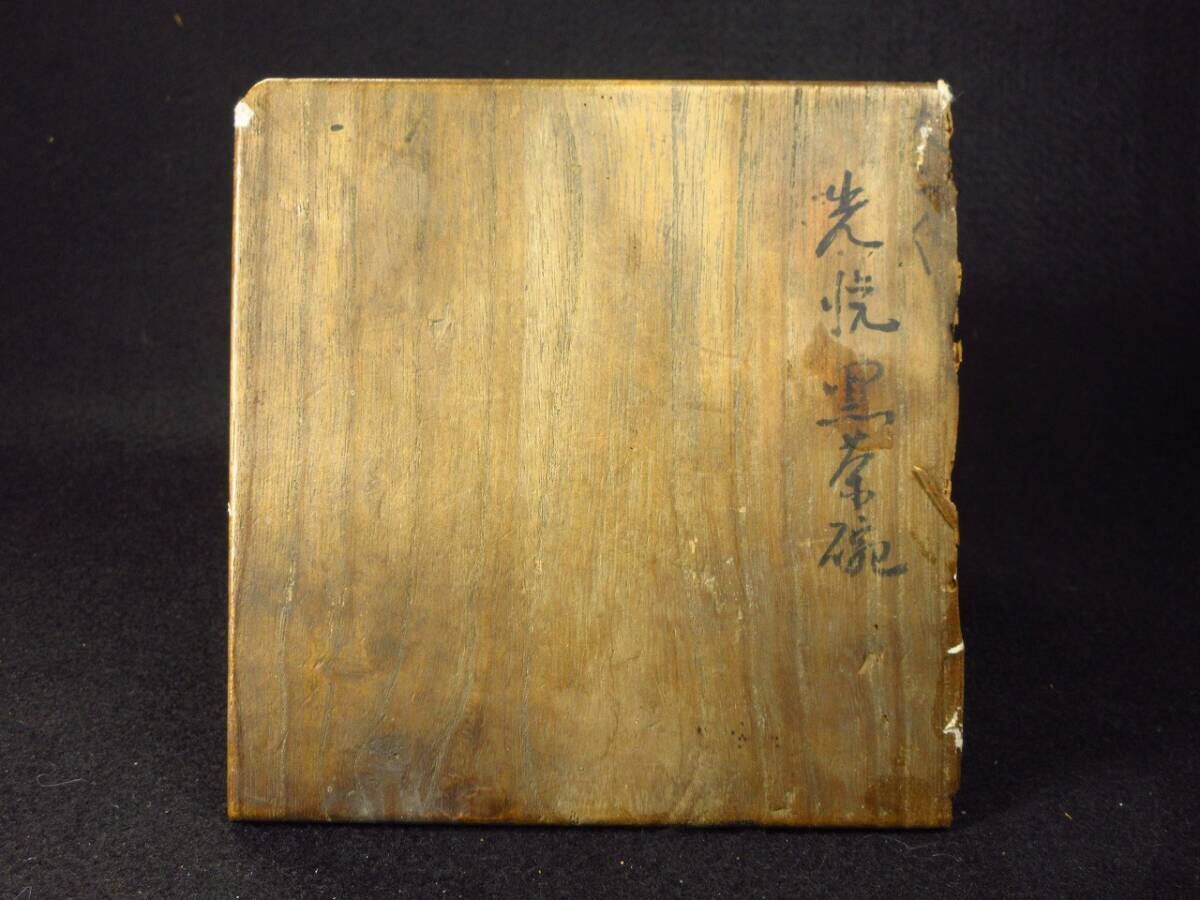 光悦黒茶碗